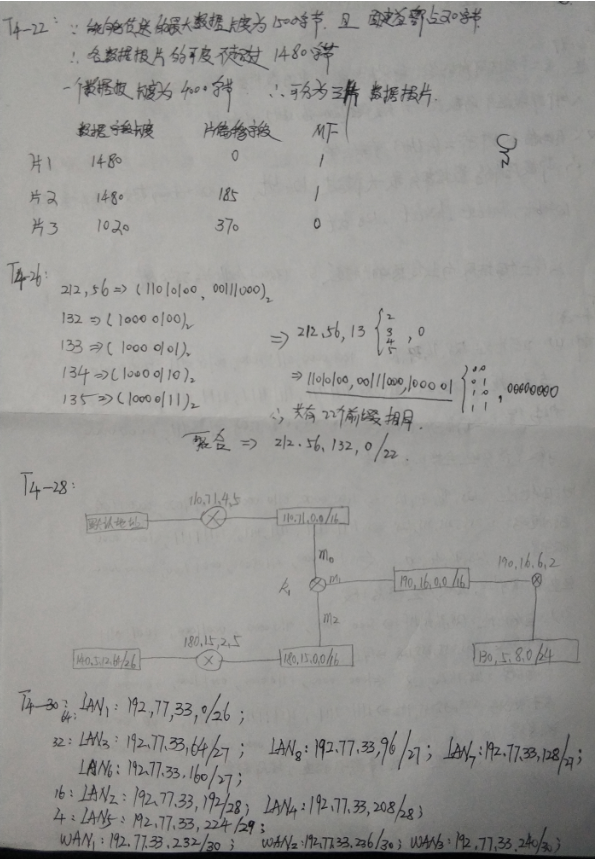 T4-22: ∵ 能够传送的最大数据长度为1500字节. 且 固定首部占20字节
∴ 各数据报片的长度不超过 1480字节
一个数据报长度为4000字节 ∴可分为三片 数据报片.
数据字段长度 片偏移字段 MF
片1 1480 0 1
片2 1480 185 1
片3 1020 370 0
T4-26:
212,56 => (11010100, 00111000)₂
132 => (10000100)₂
133 => (10000101)₂
134 => (10000110)₂
135 => (10000111)₂
=> 212,56,13 { 2 3 4 5 , 0
=> 11010100,00111000,100001 { 00 01 10 11 , 00000000
∴ 共有22个前缀相同.
聚合 => 212.56,132,0/22.
T4-28:
110,71,4,5
默认地址
110,71,0,0/16
m0
R1 m1
190,16,0,0/16
190,16,6,2
m2
180,15,2,5
180,15,0,0/16
130,5,8,0/24
T4-30:
64: LAN1: 192,77,33,0/26;
32: LAN3: 192,77,33,64/27; LAN8: 192,77,33,96/27; LAN7: 192,77,33,128/27;
LAN6: 192,77,33,160/27;
16: LAN2: 192,77,33,192/28; LAN4: 192,77,33,208/28;
4: LAN5: 192,77,33,224/29;
WAN1: 192,77,33,232/30; WAN2: 192,77,33,236/30; WAN3: 192,77,33,240/30;